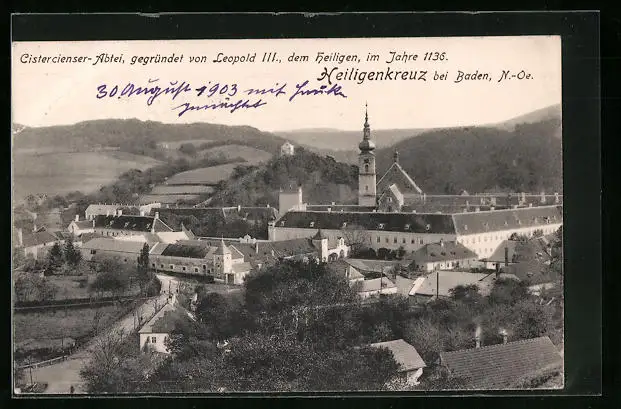 Cistercienser-Abtei, gegründet von Leopold III., dem Heiligen, im Jahre 1136.
Heiligenkreuz bei Baden, N.-Oe.
30 August 1903 mit